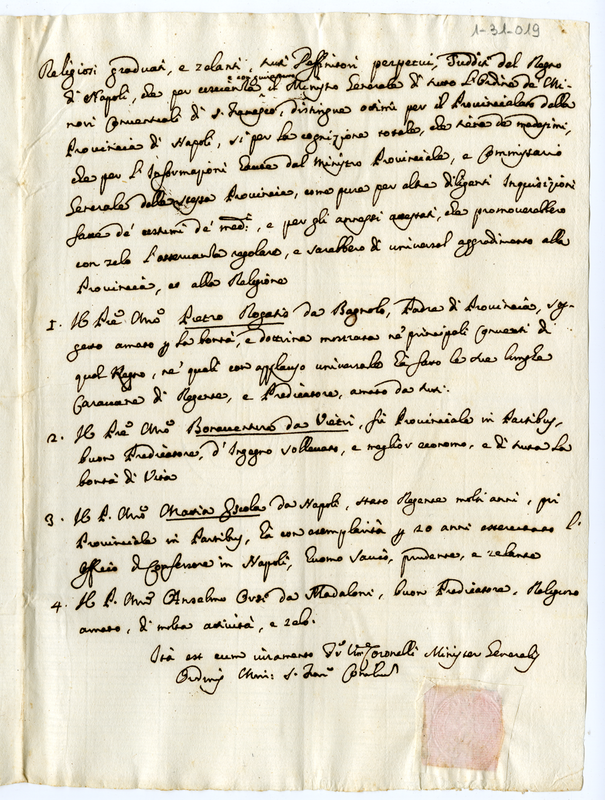 1-31-019
Religiosi graduati, e zelanti, tutti Deffinitori perpetui, Sudditi del Regno
di Napoli, che per coscienza
con giuramento
il Ministro Generale di tutto l'Ordine de Mi-
nori Conventuali di S. Francesco, distingue ottimi per il Provincialato della
Provincia di Napoli, sì per la cognizione totale, che tiene de medesimi,
che per l'Informazioni dal Ministro Provinciale, e Commissario
Generale della stessa Provincia, come pure per altre diligenti Inquisizioni
fatte de' costumi de' med.i, e per gli annessi attestati, che promoverebbero
con zelo l'osservanza regolare, e sarebbero di universal aggradimento alla
Provincia, et alla Religione
1. Il Pre Mro Pietro Rogatis da Bagnolo, Padre di Provincia, sog-
getto amato p la bontà, e dottrina mostrata ne' principali Conventi di
quel Regno, ne' quali con applauso universale hà fatto le sue lunghe
Caravane di Reggente, e Predicatore, amato da tutti.
2. Il Pre Mro Bonaventura da Vietri, fù Provinciale in Partibus,
buon Predicatore, d'Ingegno sollevato, e meglior economo, e di tutta la
bontà di Vita
3. Il P. Mro Maria Escola da Napoli, stato Regente molti anni, poi
Provinciale in Partibus, hà con esemplarità p 20 anni essercitato l'
Officio di Confessore in Napoli, Huomo savio, prudente, e zelante
4. Il P. Mro Anselmo da Madaloni, buon Predicatore, Religioso
amato, di molta attività, e zelo.
Ità est cum iuramento Fr Vinc Coronelli Minister Generalis
Ordinis Min: S. Fran Conulium